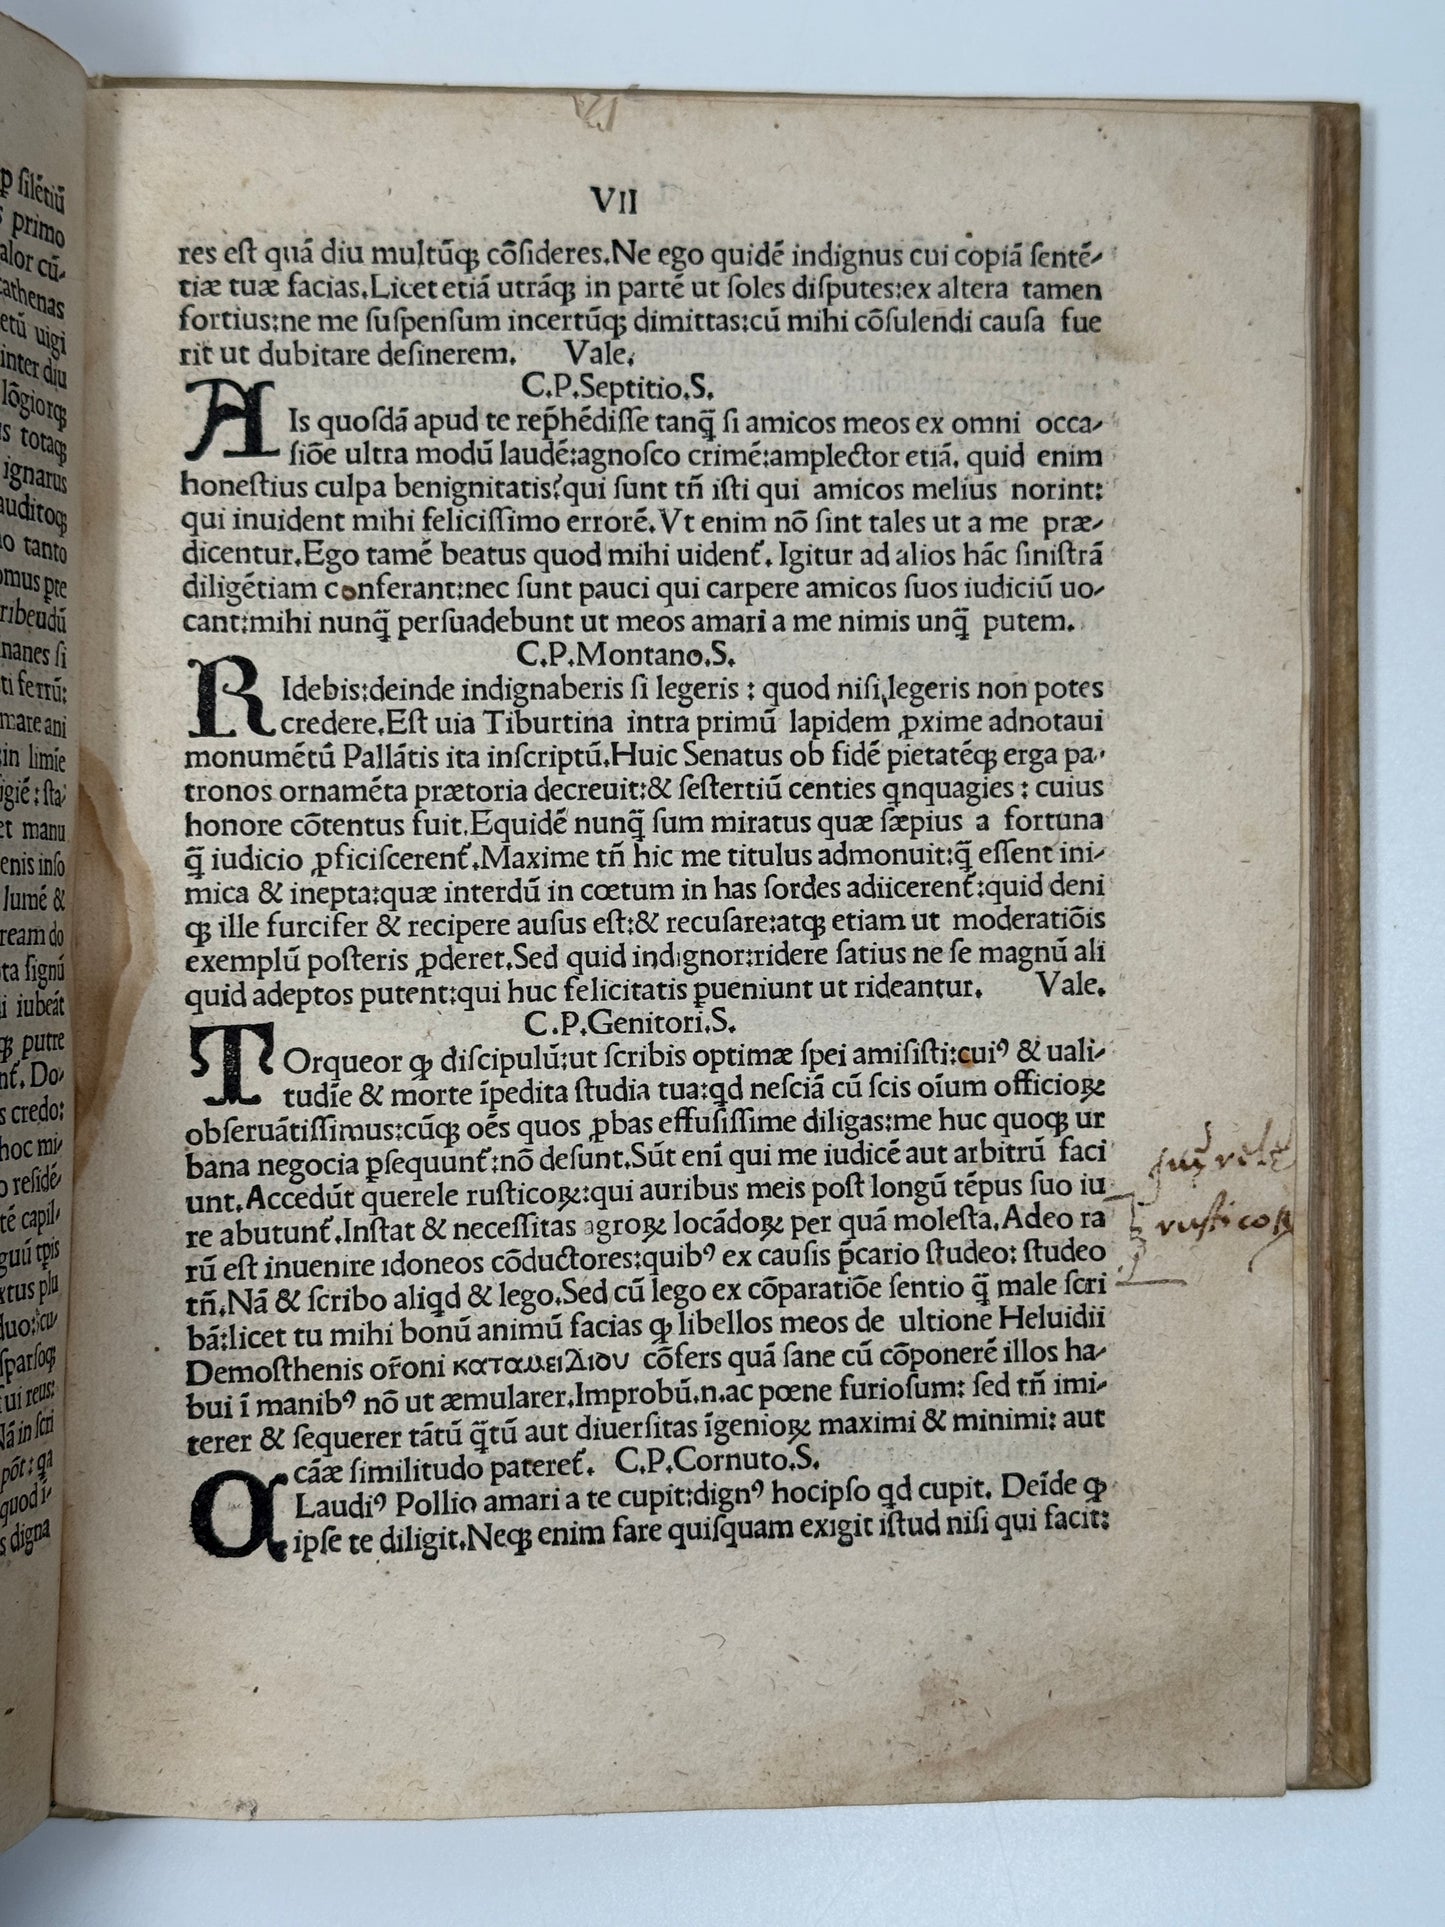 p silētiū
primo
alor cū-
athenas
etū uigi
inter diu
lōgiorꝗ
s totaꝗ
ignarus
auditoꝗ
o tanto
omus pre
ribeudū
nanes si
ti ferrū:
mare ani
in limīe
igiē: sta
et manu
enis inso
lumē &
ream do
ta signū
i iubeāt
putre
Do-
s credo:
hoc mi-
o residē-
tē capil-
xtus plu
ui reus:
Nā in scri
quod ī-
s digna
VII
res est quā diu multūꝗ cōsideres.Ne ego quidē indignus cui copiā sentē-
tiæ tuæ facias.Licet etiā utrāꝗ in partē ut soles disputes:ex altera tamen
fortius:ne me suspensum incertūꝗ dimittas:cū mihi cōsulendi causa fue
rit ut dubitare desinerem. Vale.
C.P.Septitio.S.
AIs quosdā apud te rep̄hēdisse tanq̄ si amicos meos ex omni occa-
siōe ultra modū laudē:agnosco crimē:amplector etiā. quid enim
honestius culpa benignitatis?qui sunt tñ isti qui amicos melius norint:
qui inuident mihi felicissimo errorē.Vt enim nō sint tales ut a me præ-
dicentur.Ego tamē beatus quod mihi uident᷑. Igitur ad alios hāc sinistrā
diligētiam conferant:nec sunt pauci qui carpere amicos suos iudiciū uo-
cant:mihi nunq̄ persuadebunt ut meos amari a me nimis unq̄ putem.
C.P.Montano.S.
RIdebis:deinde indignaberis si legeris : quod nisi legeris non potes
credere.Est uia Tiburtina intra primū lapidem ꝓxime adnotaui
monumētū Pallātis ita inscriptū.Huic Senatus ob fidē pietatēꝗ erga pa-
tronos ornamēta prætoria decreuit:& sestertiū centies qnquagies : cuius
honore cōtentus fuit.Equidē nunq̄ sum miratus quæ sæpius a fortuna
q̄ iudicio ꝓficiscerent᷑.Maxime tñ hic me titulus admonuit:q̄ essent ini-
mica & inepta:quæ interdū in cœtum in has sordes adiicerent᷑:quid deni
ꝗ ille furcifer & recipere ausus est:& recusare:atꝗ etiam ut moderatiōis
exemplū posteris ꝓderet.Sed quid indignor:ridere satius ne se magnū ali
quid adeptos putent:qui huc felicitatis ꝑueniunt ut rideantur. Vale.
C.P.Genitori.S.
TOrqueor ꝙ discipulū:ut scribis optimæ spei amisisti:cuiꝰ & uali-
tudīe & morte īpedita studia tua:qd nesciā cū scis oīum officioꝝ
obseruātissimus:cūꝗ oēs quos ꝓbas effusissime diligas:me huc quoꝗ ur
bana negocia ꝑsequunt᷑:nō desunt.Sūt enī qui me iudicē aut arbitrū faci
unt.Accedūt querele rusticoꝝ:qui auribus meis post longū tēpus suo iu
re abutunt᷑.Instat & necessitas agroꝝ locādoꝝ per quā molesta.Adeo ra
rū est inuenire idoneos cōductores:quibꝰ ex causis p̄cario studeo: studeo
tñ.Nā & scribo aliqd & lego.Sed cū lego ex cōparatiōe sentio q̄ male scri
bā:licet tu mihi bonū animū facias ꝙ libellos meos de ultione Heluidii
Demosthenis or̄oni καταμειδιου cōfers quā sane cū cōponerē illos ha-
bui ī manibꝰ nō ut æmularer.Improbū.n.ac pœne furiosum: sed tñ imi-
terer & sequerer tātū q̄tū aut diuersitas īgenioꝝ maximi & minimi: aut
cāæ similitudo pateret᷑. C.P.Cornuto.S.
CLaudiꝰ Pollio amari a te cupit:dignꝰ hocipso qd cupit. Deīde ꝙ
ipse te diligit.Neꝗ enim fare quisquam exigit istud nisi qui facit:
rusticoꝝ